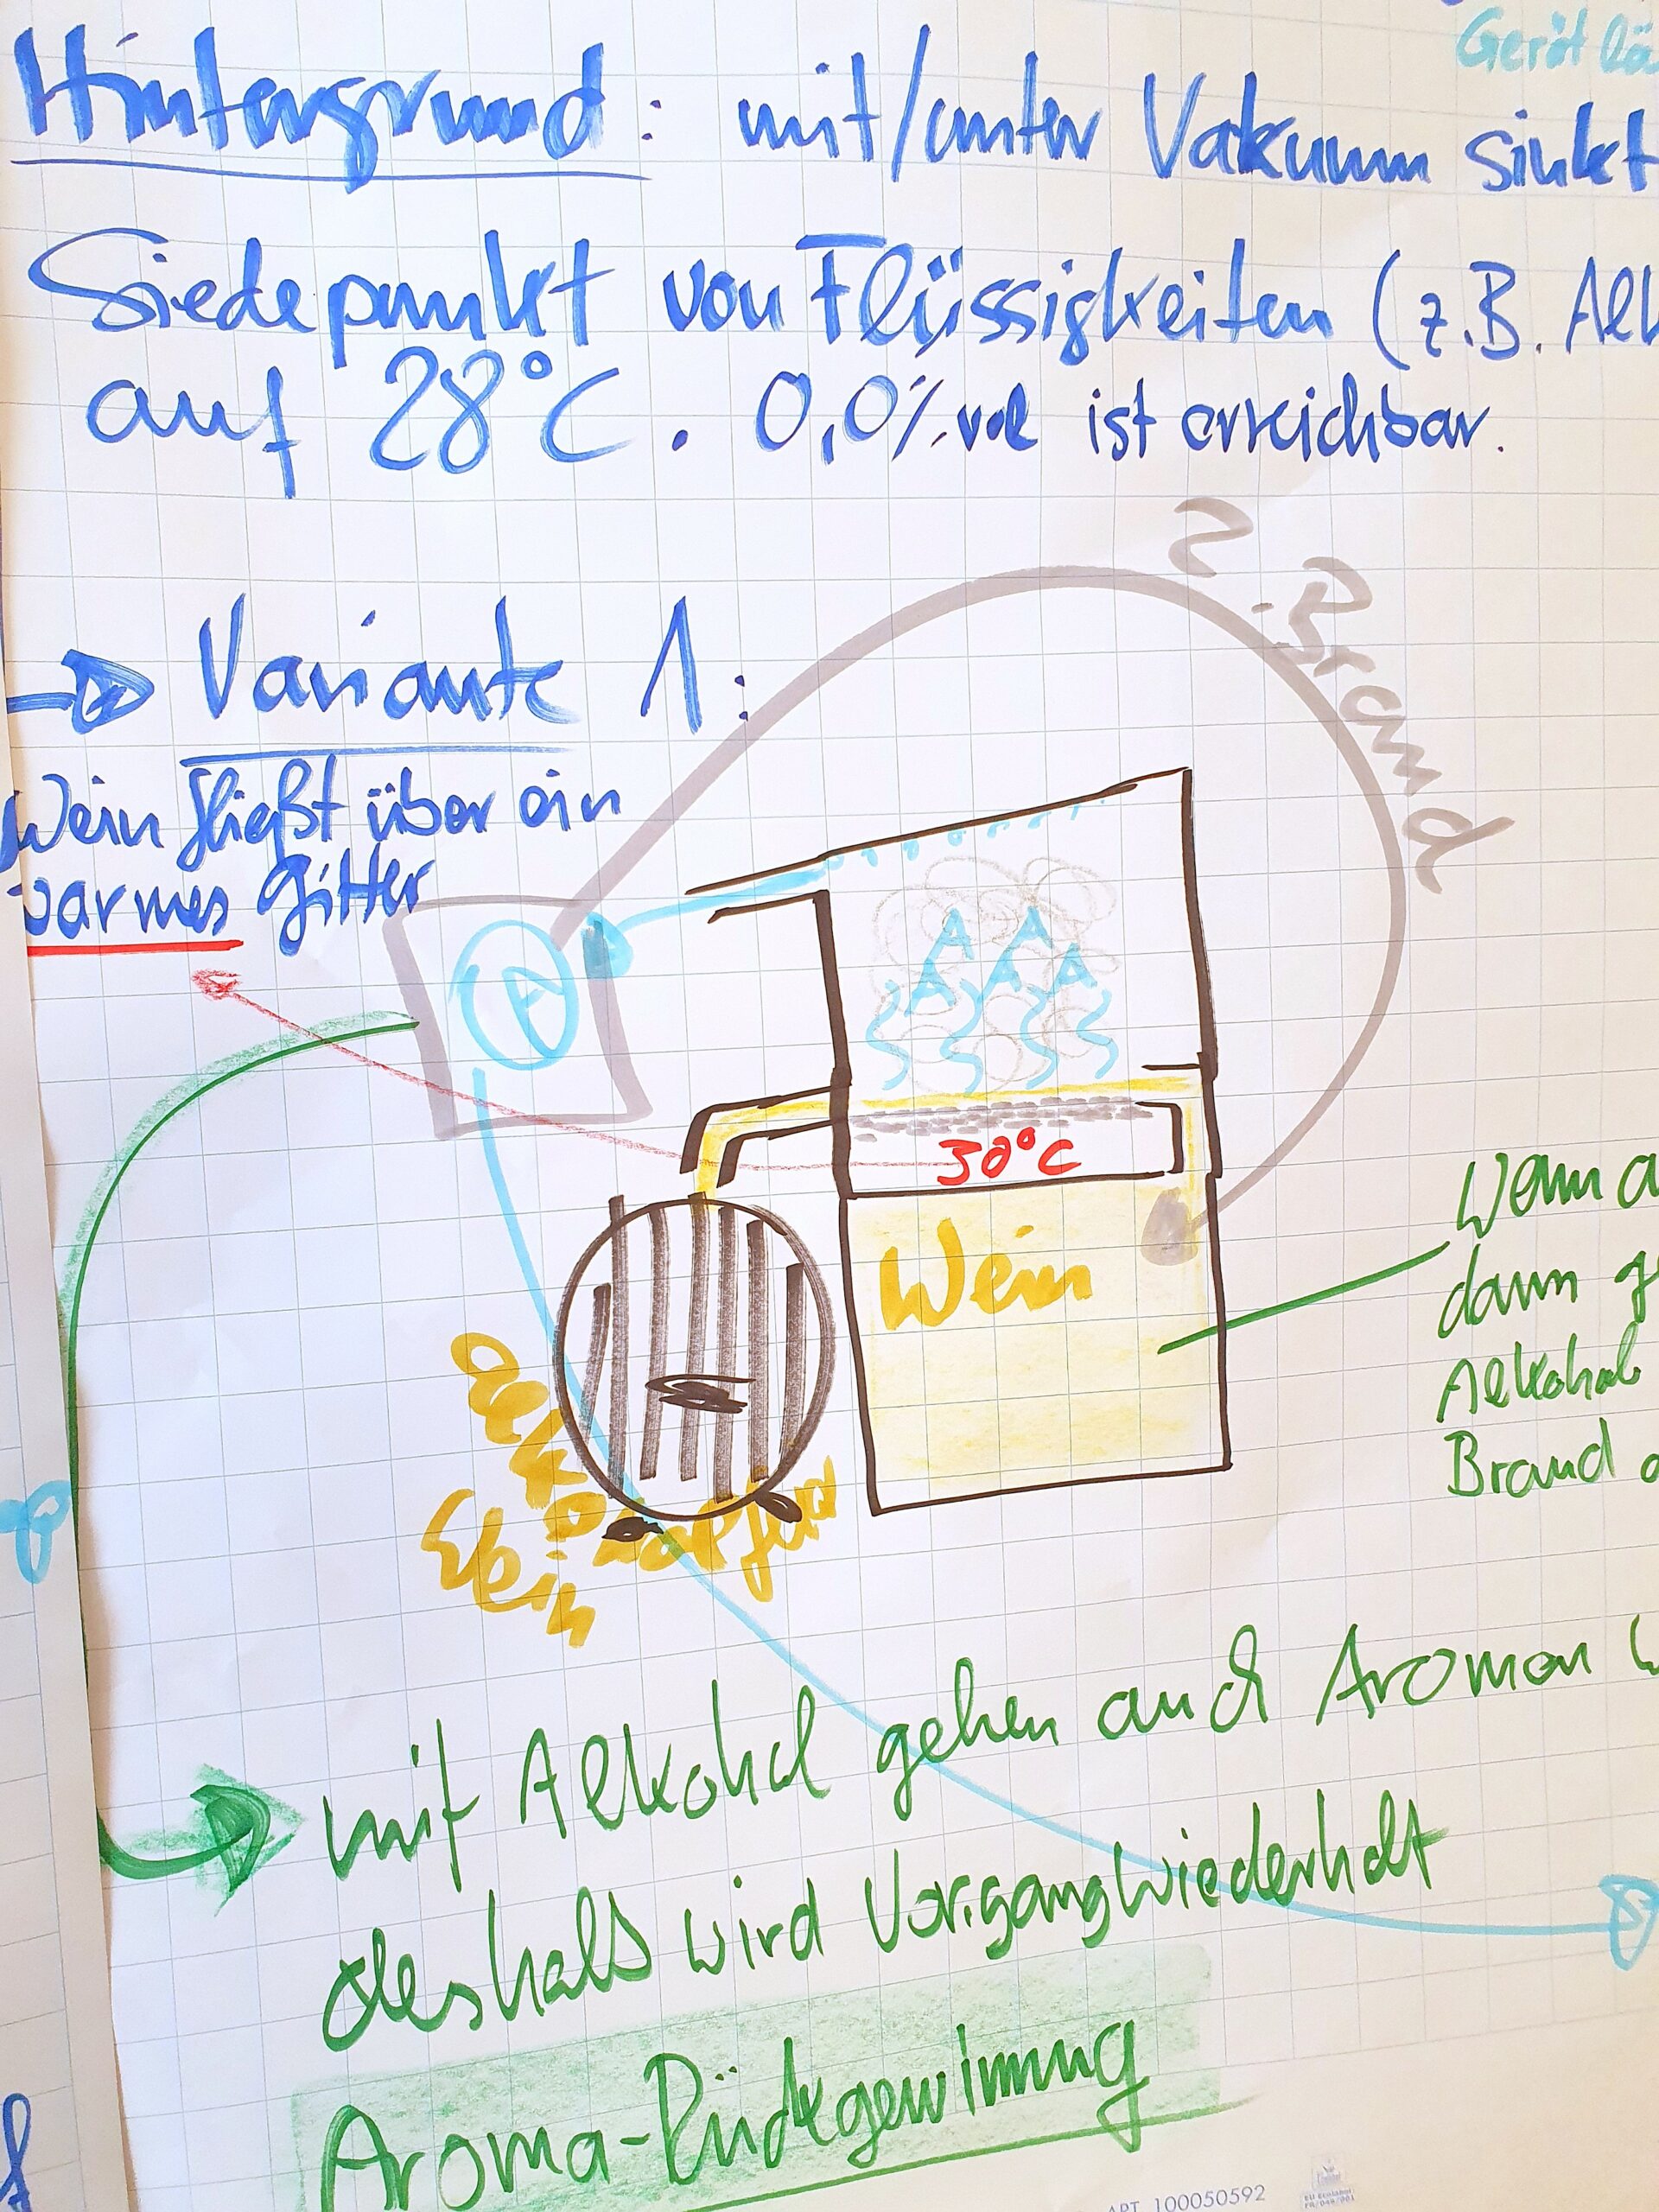 Gerät lä
Hintergrund: mit/unter Vakuum sinkt
Siedepunkt von Flüssigkeiten (z.B. Alk
auf 28°C. 0,0%vol ist erreichbar.
2. Brand
Variante 1:
Wein fließt über ein
warmes Gitter
A
A A
A A A
30°C
Wein
Wenn a
dann ge
Alkohol
Brand
mit Alkohol gehen auch Aromen w
deshalb wird Vorgang wiederholt
Aroma-Rückgewinnung
ART. 100050592